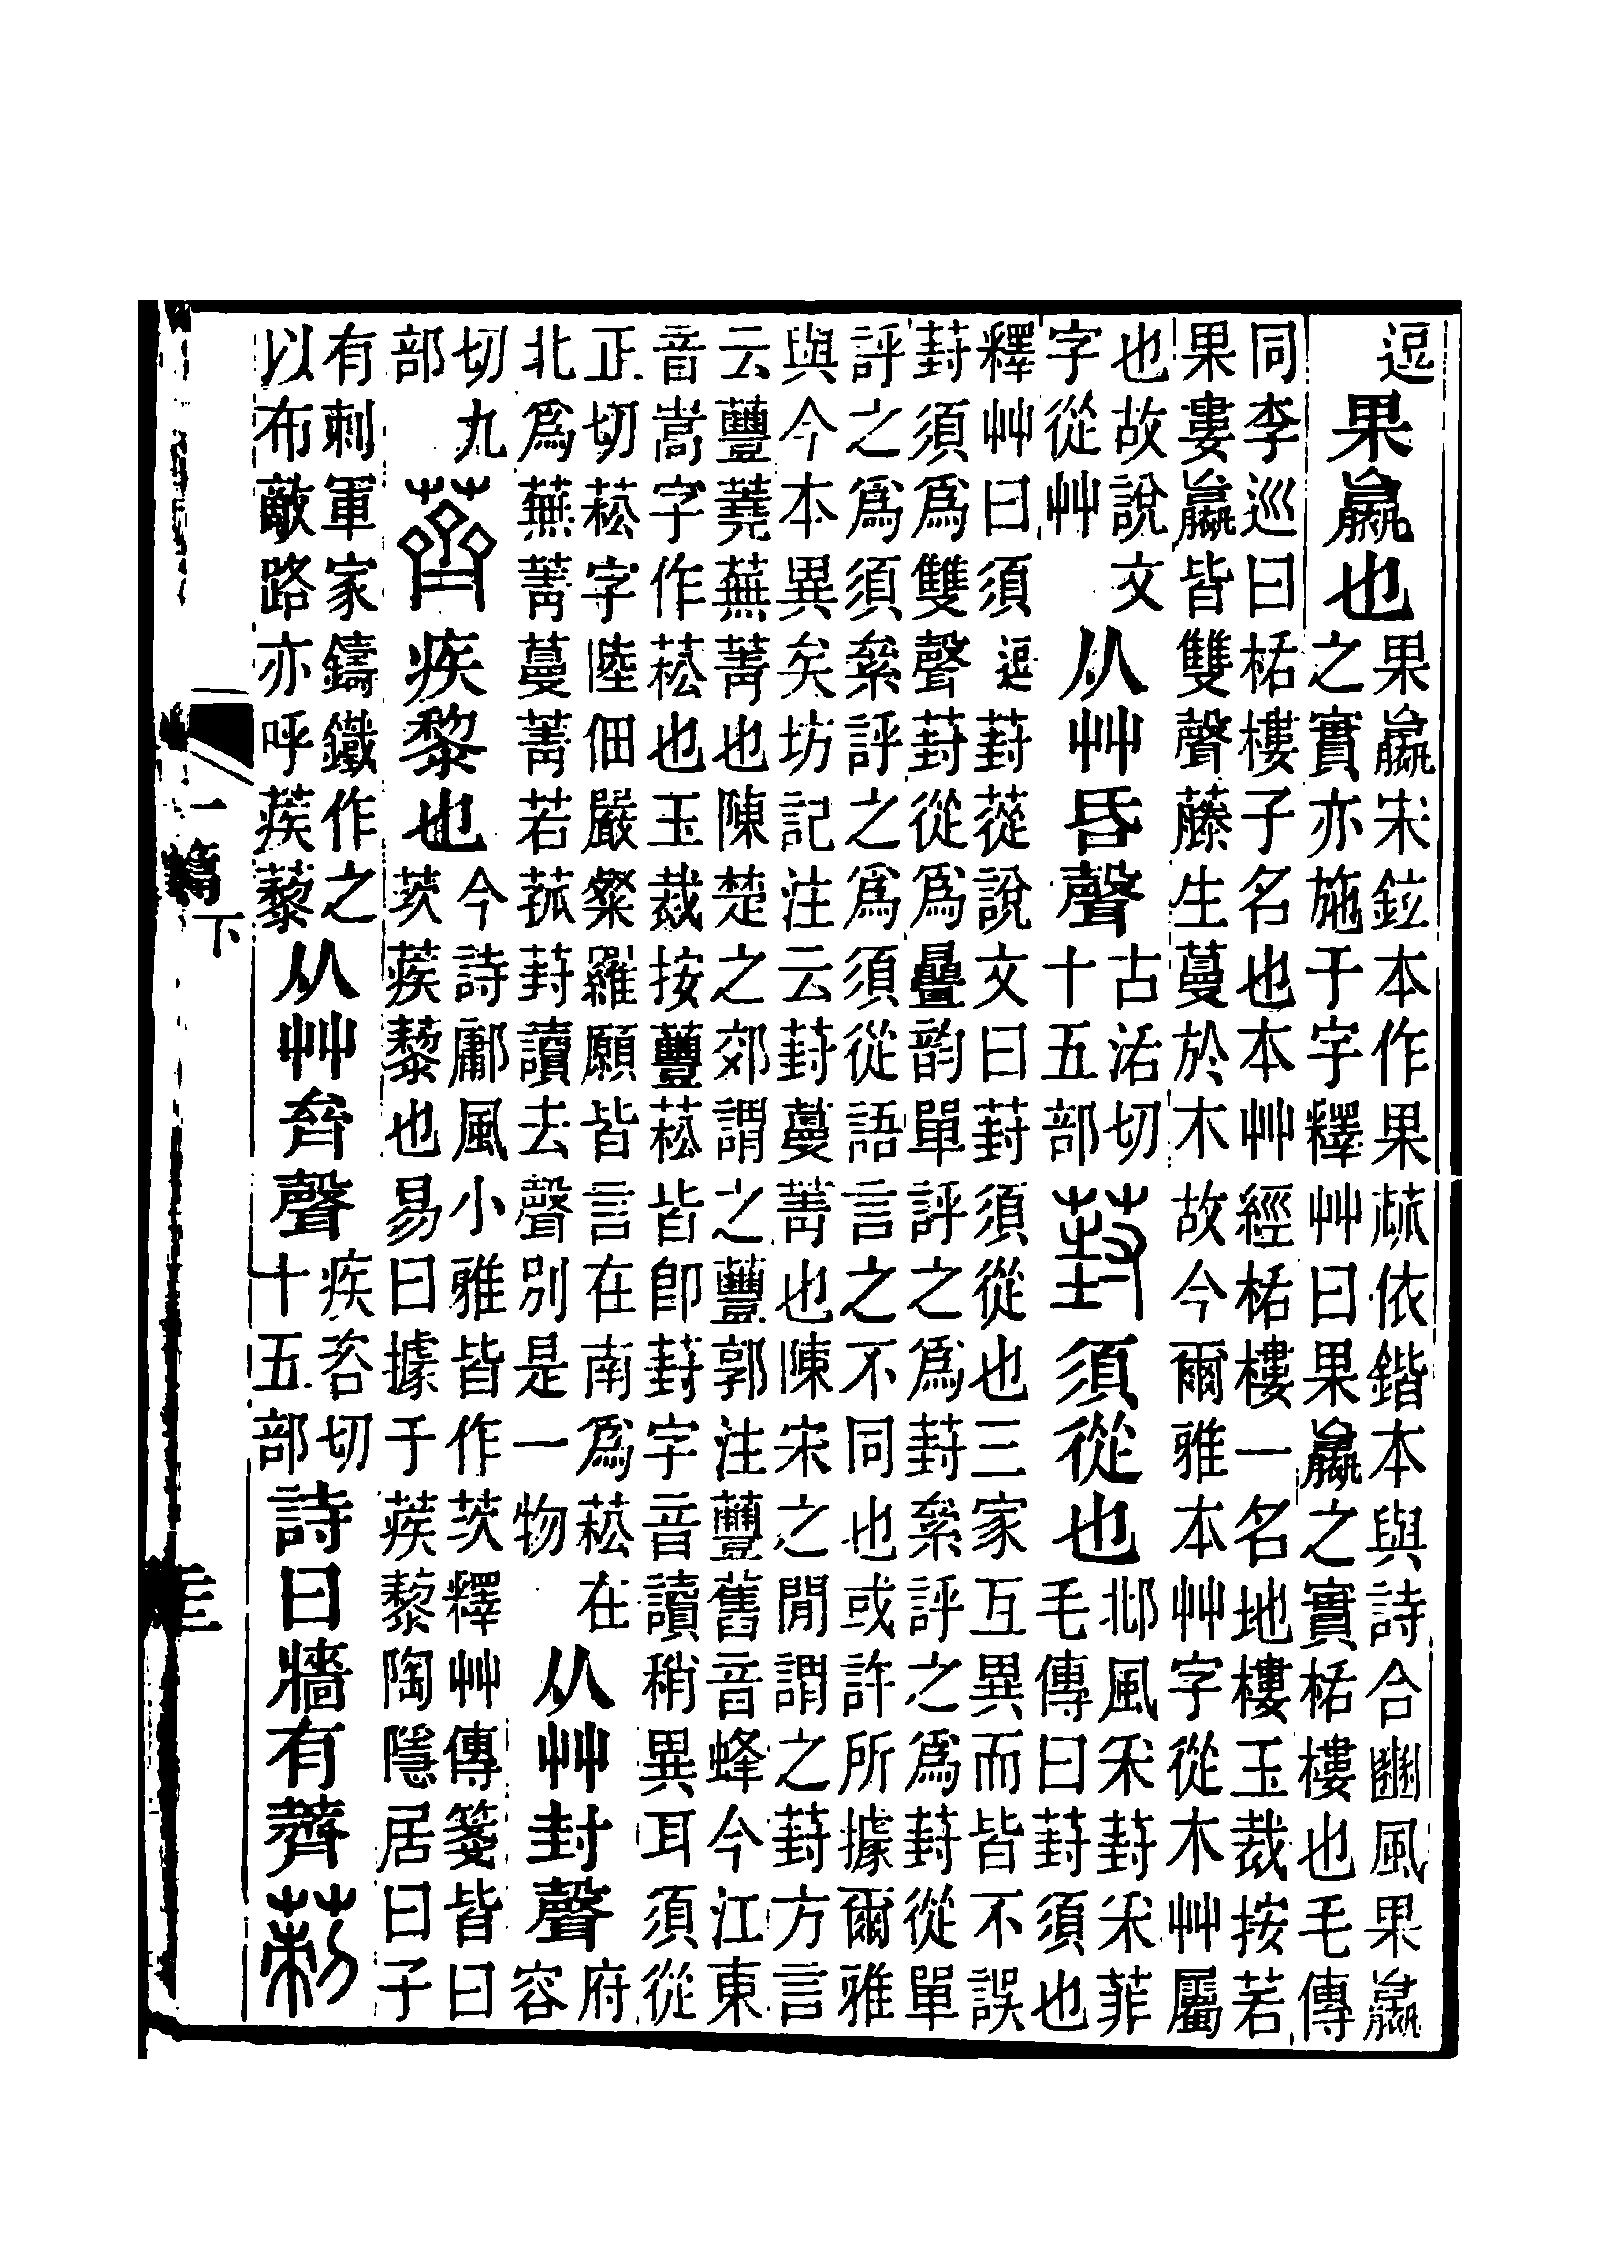 逗
果蠃也
果蠃宋鉉本作果蓏依鍇本與詩合豳風果蠃
之實亦施于宇釋艸曰果蠃之實栝樓也毛傳
同李巡曰栝樓子名也本艸經栝樓一名地樓玉裁按若
果婁蠃皆雙聲藤生蔓於木故今爾雅本艸字從木艸屬
也故說文
字從艸
从艸昏聲
古活切
十五部
葑
須從也
邶風采葑采菲
毛傳曰葑須也
釋艸曰須逗葑蓯說文曰葑須從也三家互異而皆不誤
葑須爲雙聲葑從爲曡韵單評之爲葑絫評之爲葑從單
評之爲須絫評之爲須從語言之不同也或許所據爾雅
與今本異矣坊記注云葑蔓菁也陳宋之閒謂之葑方言
云蘴蕘蕪菁也陳楚之郊謂之蘴郭注蘴舊音蜂今江東
音嵩字作菘也玉裁按蘴菘皆卽葑字音讀稍異耳須從
正切菘字陸佃嚴粲羅願皆言在南爲菘在
北爲蕪菁蔓菁若菰葑讀去聲別是一物
从艸封聲
府
容
切九
部
薺
疾黎也
今詩鄘風小雅皆作茨釋艸傳箋皆曰
茨蒺藜也易曰據于蒺藜陶隱居曰子
有刺軍家鑄鐵作之
以布敵路亦呼蒺藜
从艸齊聲
疾咨切
十五部
詩曰牆有薺
莿
一篇下